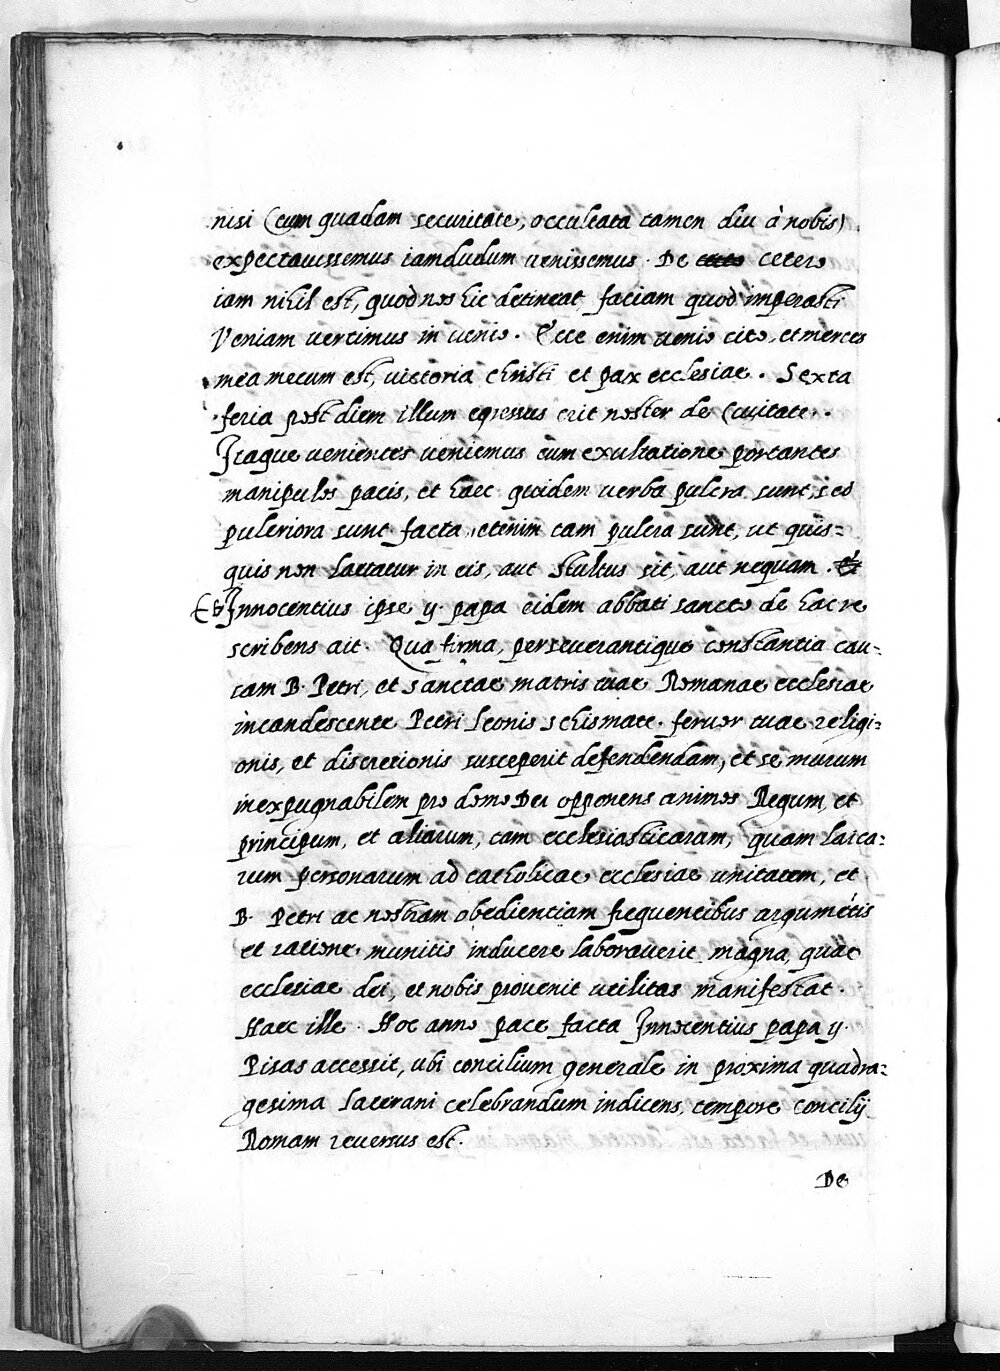 nisi (cum quadam securitate, occultata tamen diu à nobis)
expectavissemus iamdudum venissemus. De cetero
iam nihil est, quod nos hic detineat, faciam quod imperasti
Veniam vertimus in venio. Ecce enim venio cito, et merces
mea mecum est, victoria christi et pax ecclesiae. Sexta
feria post diem illum egressus erit noster de Civitate.
Itaque venientes veniemus cum exultatione portantes
manipulos pacis, et haec quidem verba pulcra sunt, sed
pulcriora sunt facta, etenim tam pulcra sunt, ut quis=
quis non laetatur in eis, aut stultus sit, aut nequam. Et
Et Innocentius ipse ij. papa eidem abbati sancto de hac re
scribens ait. Qua firma, perseverantique constantia cau=
tam B. Petri, et sanctae matris tuae Romanae ecclesiae
incandescente Petri Leonis schismate. fervor tuae religi=
onis, et discretionis susceperit defendendam, et se murum
inexpugnabilem pro domo Dei opponens animos Regum, et
principum, et aliarum, tam ecclesiasticaram, quam laica=
rum personarum ad catholicae ecclesiae unitatem, et
B. Petri ac nostram obedientiam frequentibus argumētis
et ratione munitis inducere laboraverit magna, quae
ecclesiae dei, et nobis provenit utilitas manifestat.
Haec ille. Hoc anno pace facta Innocentius papa ij.
Pisas accessit, ubi concilium generale in proxima quadra=
gesima Laterani celebrandum indicens, tempore concilij
Romam reversus est.
De